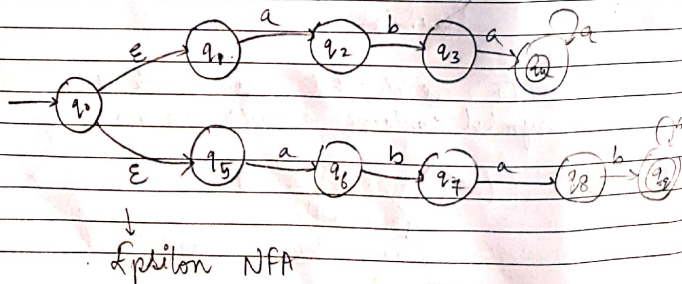 ε q1 a q2 b q3 a q4 a
q0
ε q5 a q6 b q7 a q8 b q9
Epsilon NFA